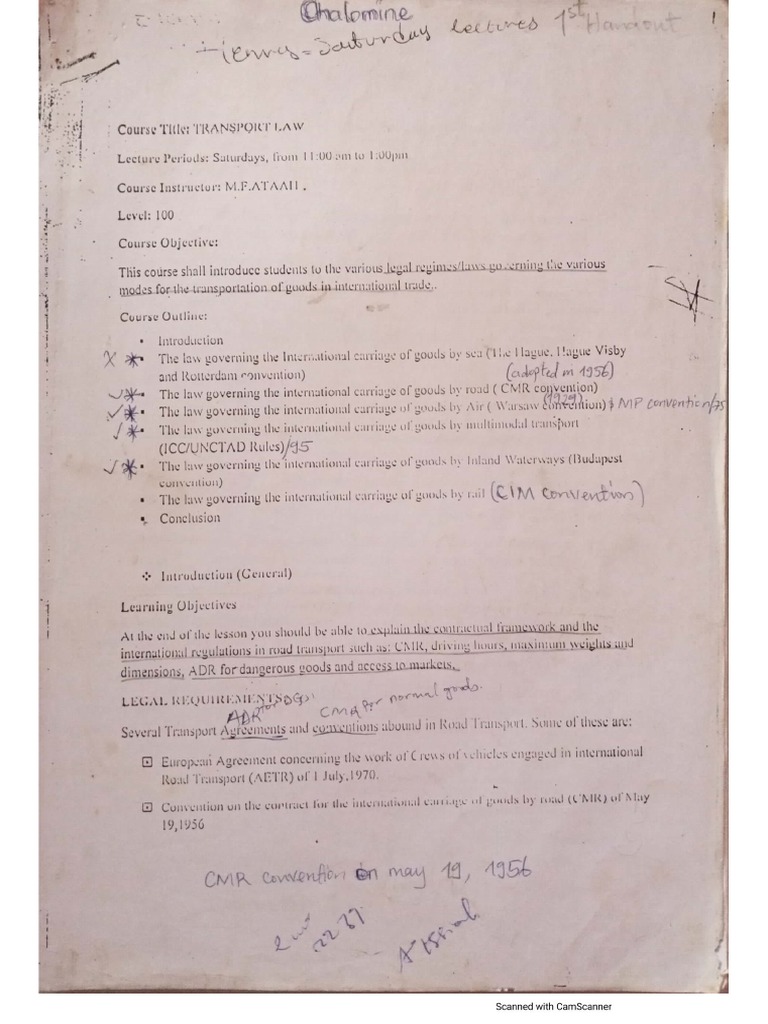 Chalomine
1
Saturday lectures 1st Handout
Course Title: TRANSPORT LAW
Lecture Periods: Saturdays, from 11:00 am to 1:00pm
Course Instructor: M.F.ATAAH .
Level: 100
Course Objective:
This course shall introduce students to the various legal regimes/laws governing the various
modes for the transportation of goods in international trade..
Course Outline:
• Introduction
X * • The law governing the International carriage of goods by sea (The Hague, Hague Visby
and Rotterdam convention) (adopted in 1956)
✓ * • The law governing the international carriage of goods by road ( CMR convention)
(1929)
✓ * • The law governing the international carriage of goods by Air ( Warsaw convention) $ MP convention/75
✓ * • The law governing the international carriage of goods by multimodal transport
(ICC/UNCTAD Rules)/95
✓ * • The law governing the international carriage of goods by Inland Waterways (Budapest
convention)
• The law governing the international carriage of goods by rail (CIM convention)
• Conclusion
❖ Introduction (General)
Learning Objectives
At the end of the lesson you should be able to explain the contractual framework and the
international regulations in road transport such as: CMR, driving hours, maximum weights and
dimensions, ADR for dangerous goods and access to markets.
LEGAL REQUIREMENTS
ADR for DGs CMR for normal goods.
Several Transport Agreements and conventions abound in Road Transport. Some of these are:
European Agreement concerning the work of Crews of vehicles engaged in international
Road Transport (AETR) of 1 July,1970.
Convention on the contract for the international carriage of goods by road (CMR) of May
19,1956
CMR convention on may 19, 1956
Scanned with CamScanner